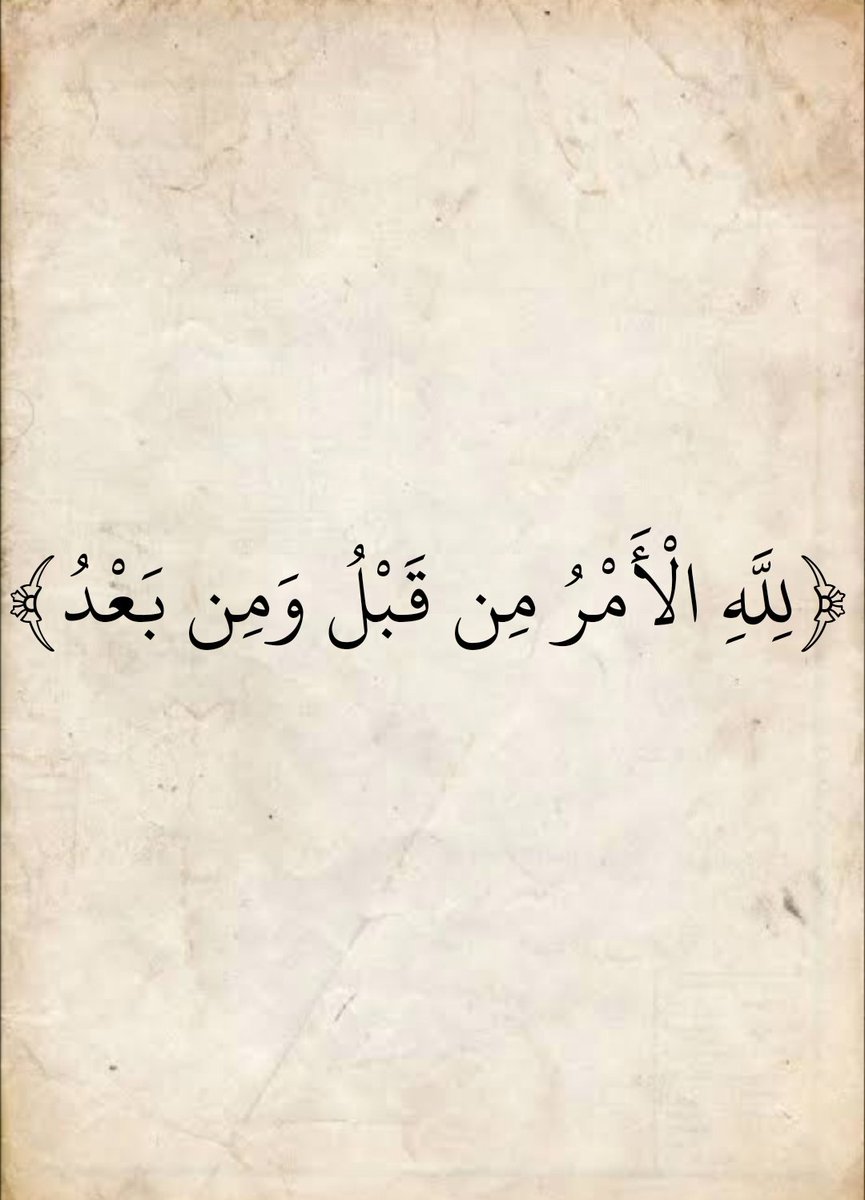 ﴿لِلَّهِ الْأَمْرُ مِن قَبْلُ وَمِن بَعْدُ﴾